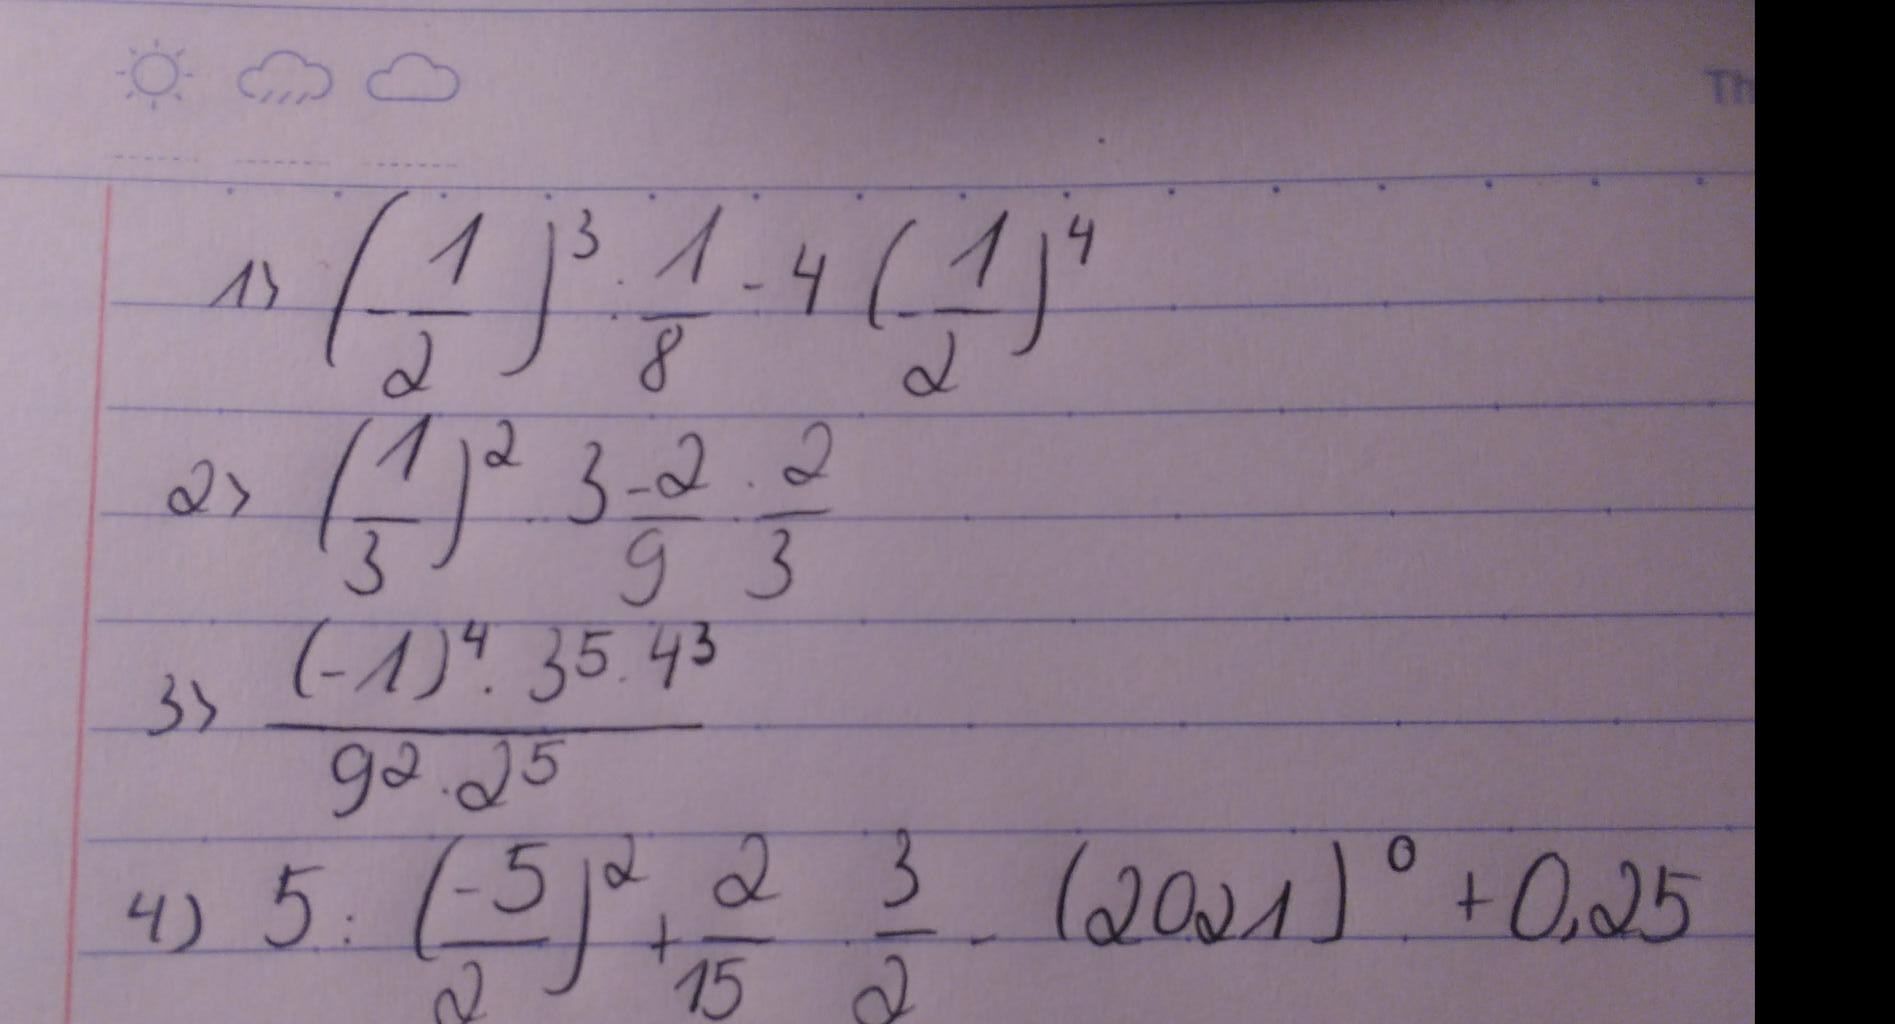 Th
1) (-1/2)^3 : 1/8 - 4 (-1/2)^4
2) (1/3)^2 . 3 -2/9 : 2/3
3) (-1)^4 . 3^5 . 4^3 / 9^2 . 2^5
4) 5 : (-5/2)^2 + 2/15 . 3/2 - (2021)^0 + 0,25